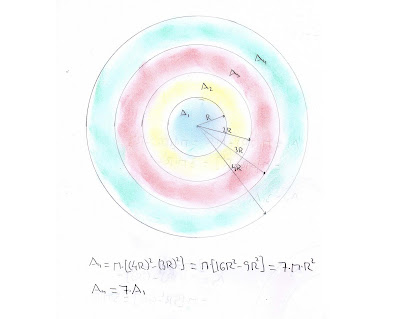 A₄
A₃
A₂
A₁
R
2R
3R
4R
A₄ = π·[(4R)²-(3R)²] = π[16R²-9R²] = 7·π·R²
A₄ = 7·A₁